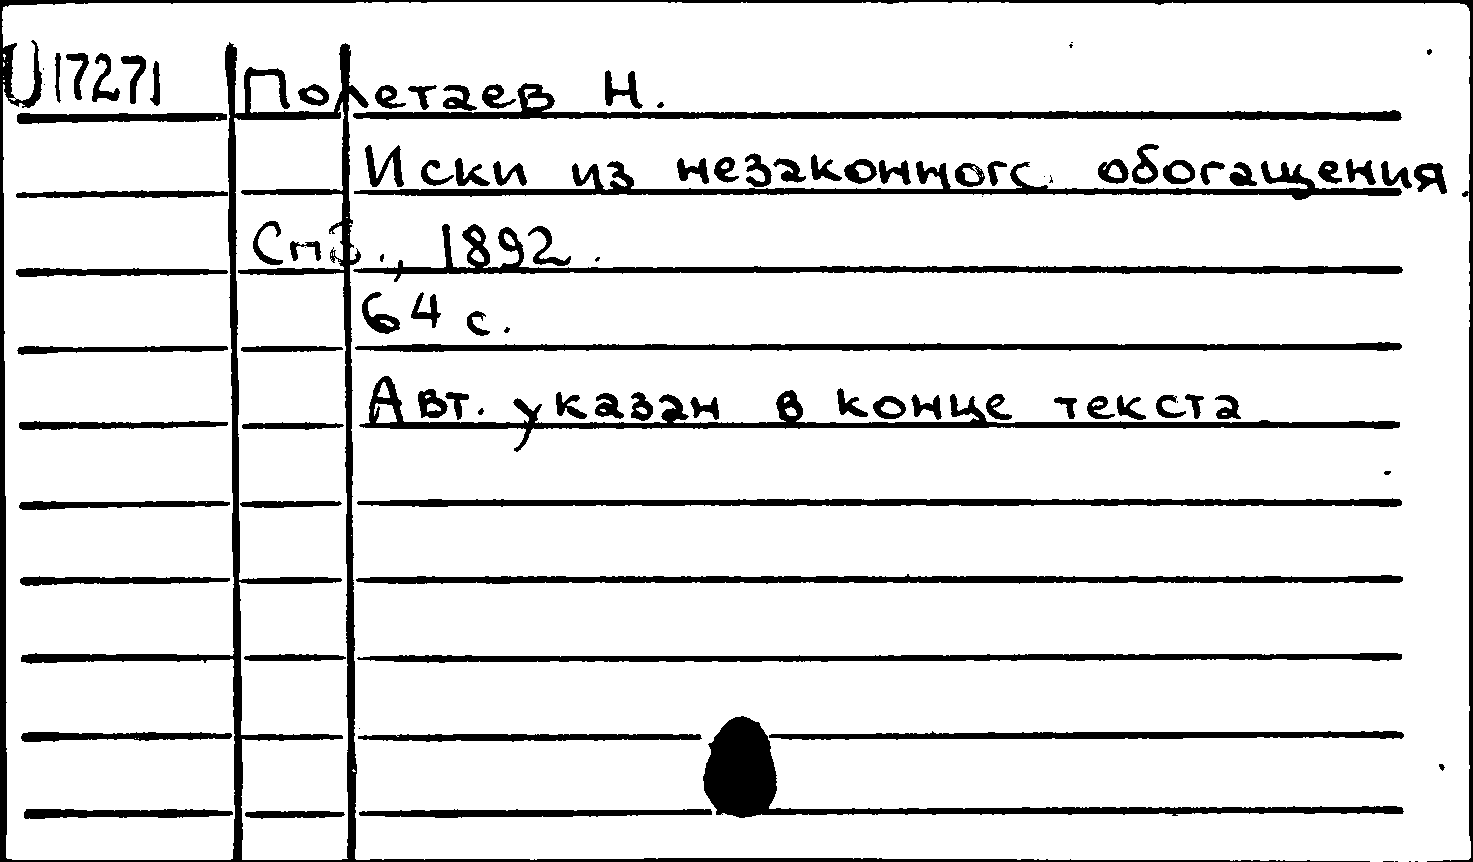 U17271 Полетаев Н.
Иски из незаконного обогащения.
Спб., 1892.
64 с.
Авт. указан в конце текста